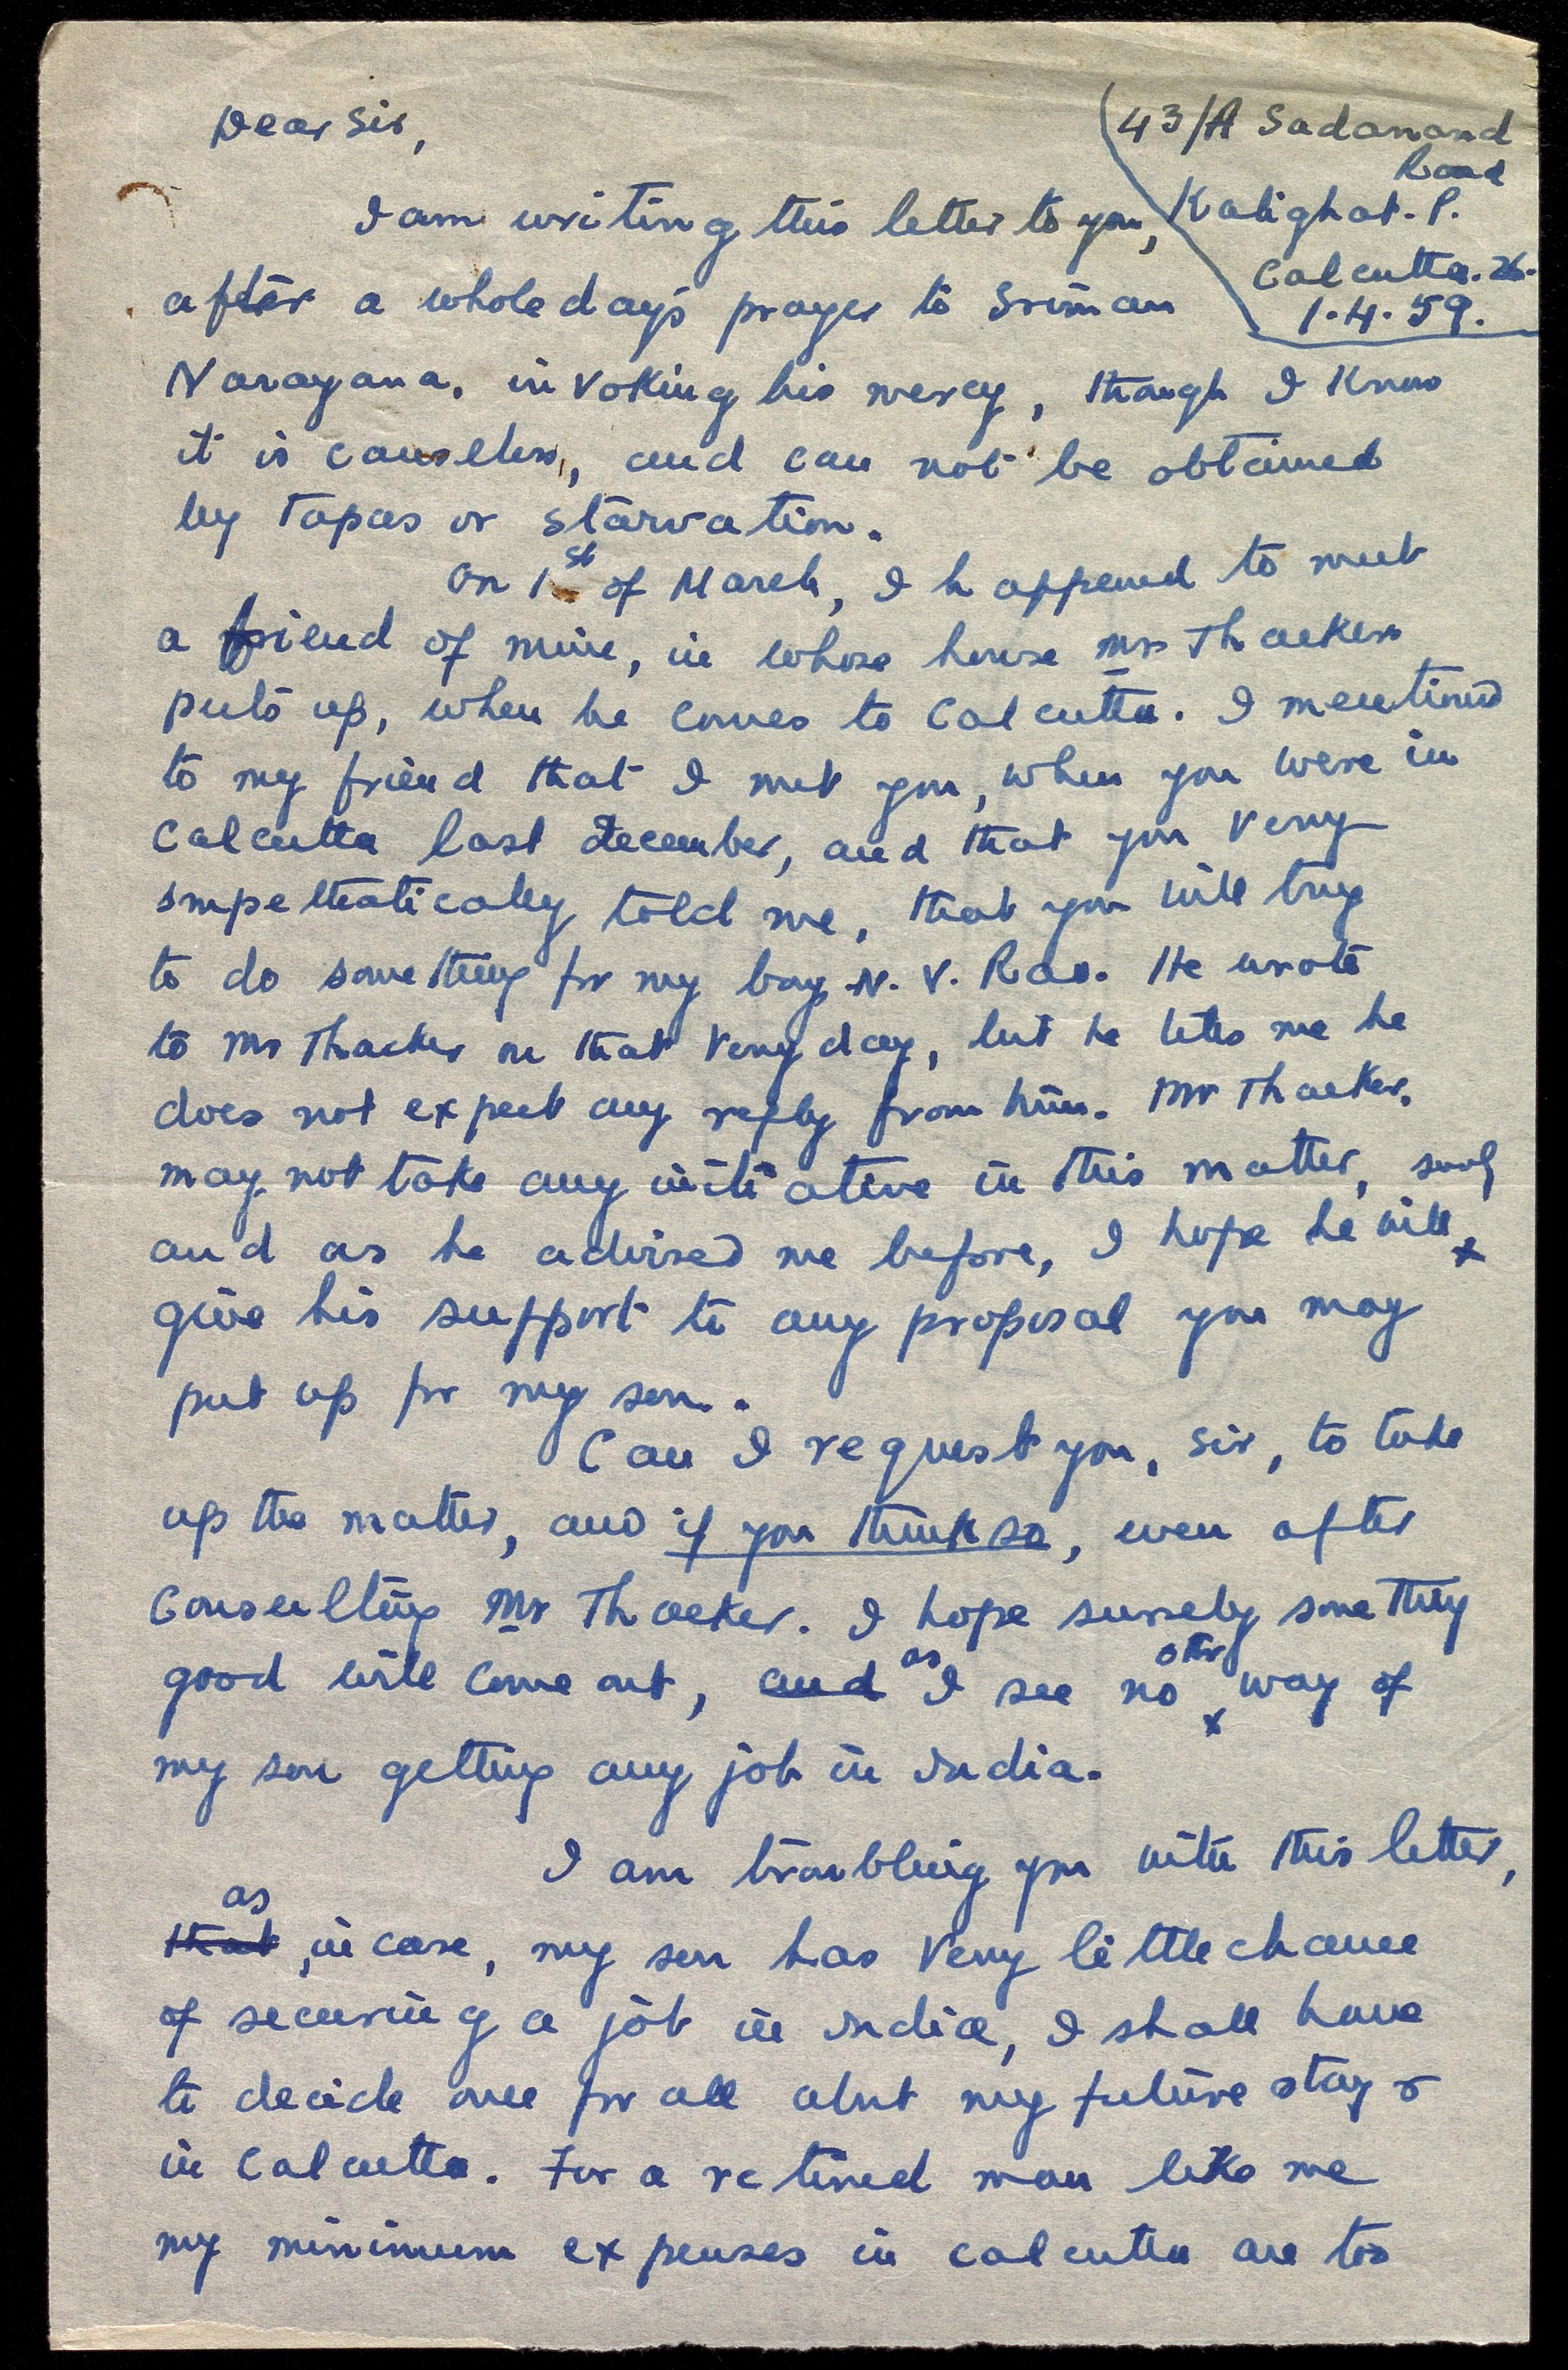 43/A Sadanand
Road
Kalighat. P.
Calcutta. 26.
1.4.59.
Dear Sir,
I am writing this letter to you,
after a whole day's prayer to Sriman
Narayana, invoking his mercy, though I know
it is causeless, and can not be obtained
by Tapas or starvation.
On 1st of March, I happened to meet
a friend of mine, in whose house Mr Thacker
puts up, when he comes to Calcutta. I mentioned
to my friend that I met you, when you were in
Calcutta last December, and that you very
smpethatically told me, that you will try
to do something for my boy N. V. Rao. He wrote
to Mr Thacker on that very day, but he tells me he
does not expect any reply from him. Mr Thacker,
may not take any initiative in this matter,
and as he advised me before, I hope he will x
give his support to any proposal you may
put up for my son.
Can I request you, Sir, to take
up the matter, and if you think so, even after
consulting Mr Thacker. I hope surely something
good will come out, and as I see no other way of
my son getting any job in India.
I am troubling you with this letter,
that as, in case, my son has very little chance
of securing a job in India, I shall have
to decide once for all abut my future stay
in Calcutta. For a retired man like me
my minimum expenses in Calcutta are too